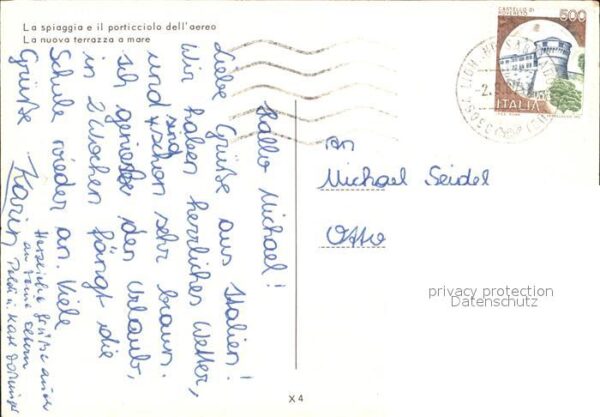 La spiaggia e il porticciolo dell'aereo
La nuova terrazza a mare
Hallo Michael!
Liebe Grüße aus Italien!
Wir haben herrliches Wetter,
und sind schon sehr braun.
Ich genieße den Urlaub,
in 2 Wochen fängt die
Schule wieder an. Viele
Grüße Karin
Herzliche Grüße auch
an Deine Eltern
CASTELLO DI
ROVERETO
500
ITALIA
An
Michael Seidel
Otto
privacy protection
Datenschutz
X 4